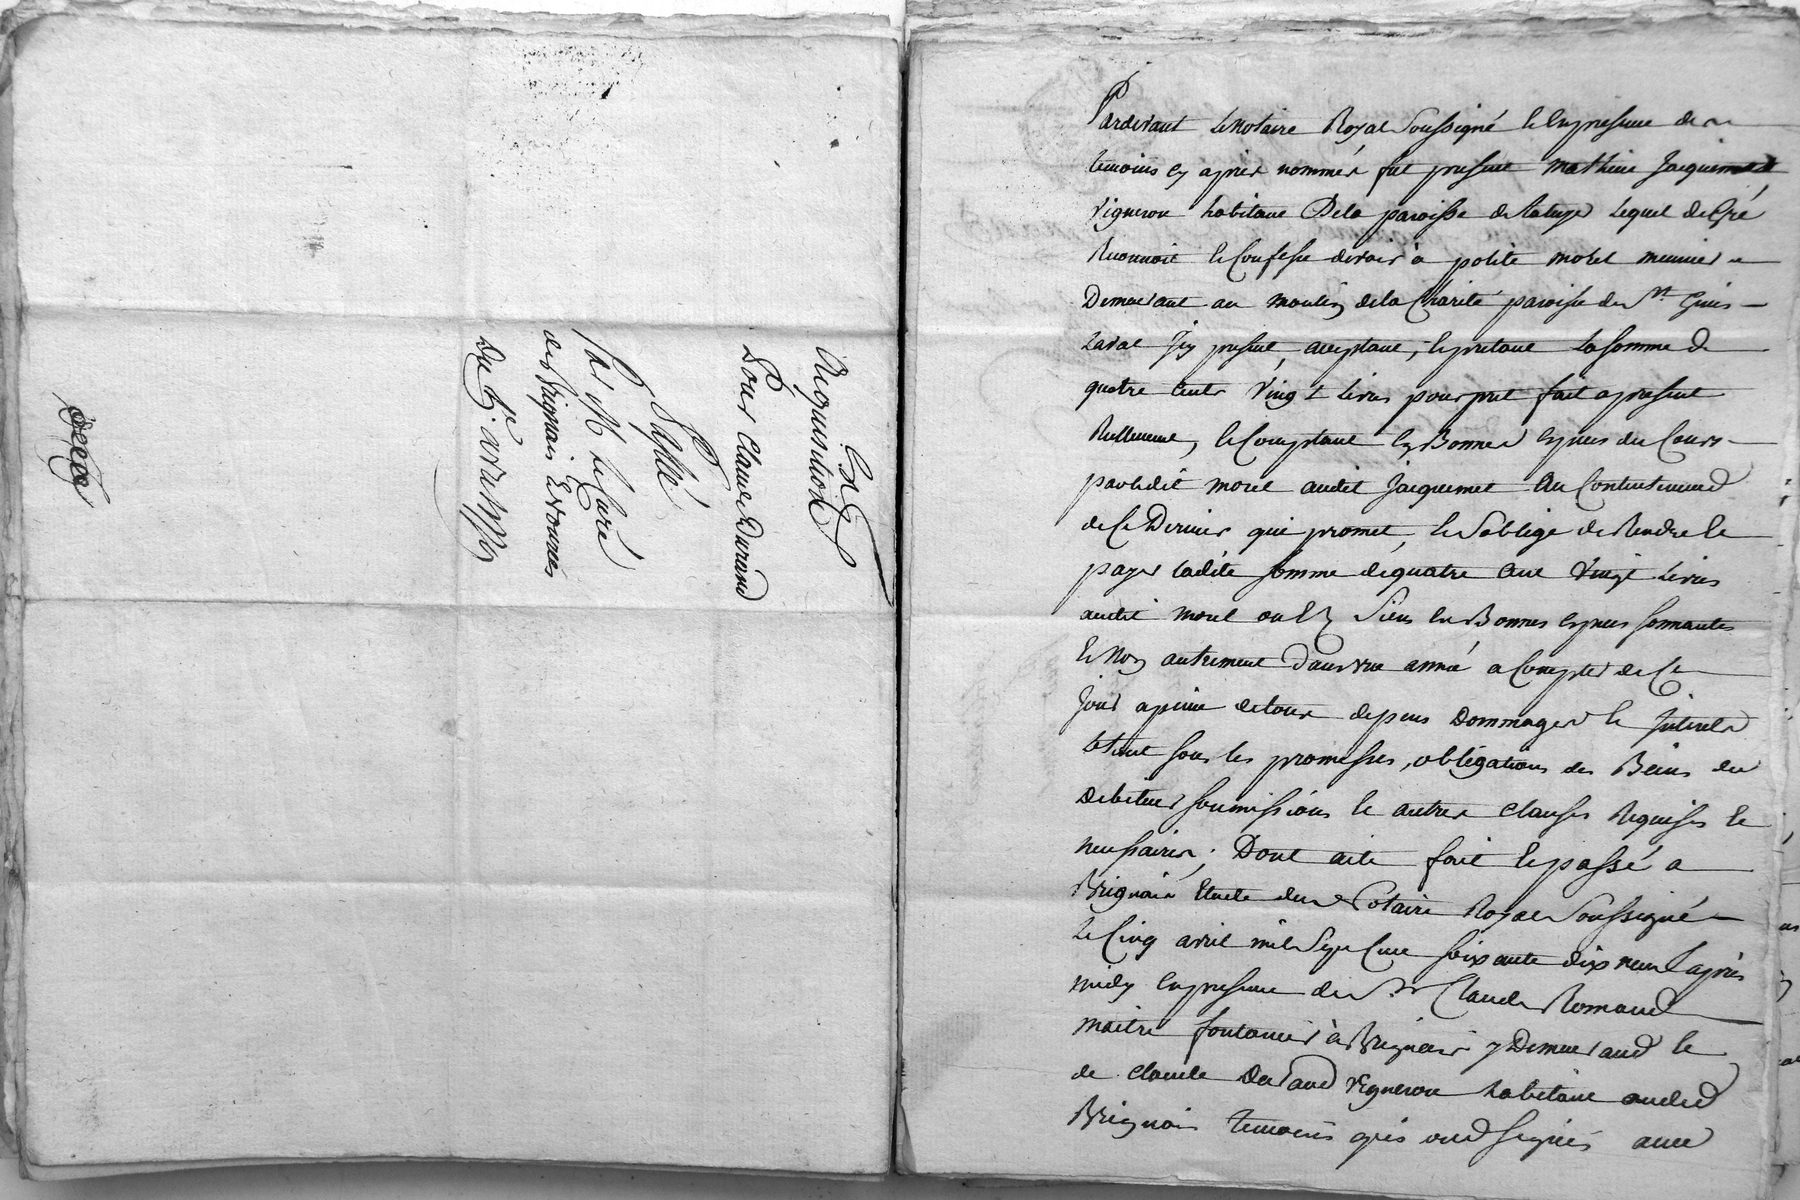 Requisition
Pour Claude Durand
Par M le Curé
de Brignais Vourles
Du 5 avril 1779
Pardevant le Notaire Royal soussigné et en presence des
temoins cy après nommés fut present Mathieu Jacquemet
vigneron habitant de la paroisse de lequel de gré
Reconnoit et confesse devoir à polite morel meunier
Demeurant au moulin de la Charité paroisse de St Genis
Laval icy present, acceptant, et pretant la somme de
quatre cents vingt livres pour pret fait a present
Reellement, et comptant en Bonnes especes du Cours
par ledit morel audit Jacquemet au Contentement
de ce Dernier qui promet, et s'oblige de Rendre et
payer ladite somme de quatre cent vingt livres
audit morel ou es siens en Bonnes especes sonnantes
et non autrement dans une année a Compter de ce
jour a peine de tous depens Dommages et interets
le tout sous les promesses, obligations des Biens du
debiteur soumissions et autres clauses Requises et
necessaires; Dont acte fait et passé a
Brignais Etude du Notaire Royal soussigné
le cinq avril mil sept cent soixante dix neuf après
midy en presence de Sr Claude Romand
maitre fontanier à Brignais y Demeurand et
de Claude Durand vigneron habitant audit
Brignais temoins qui ont signés avec